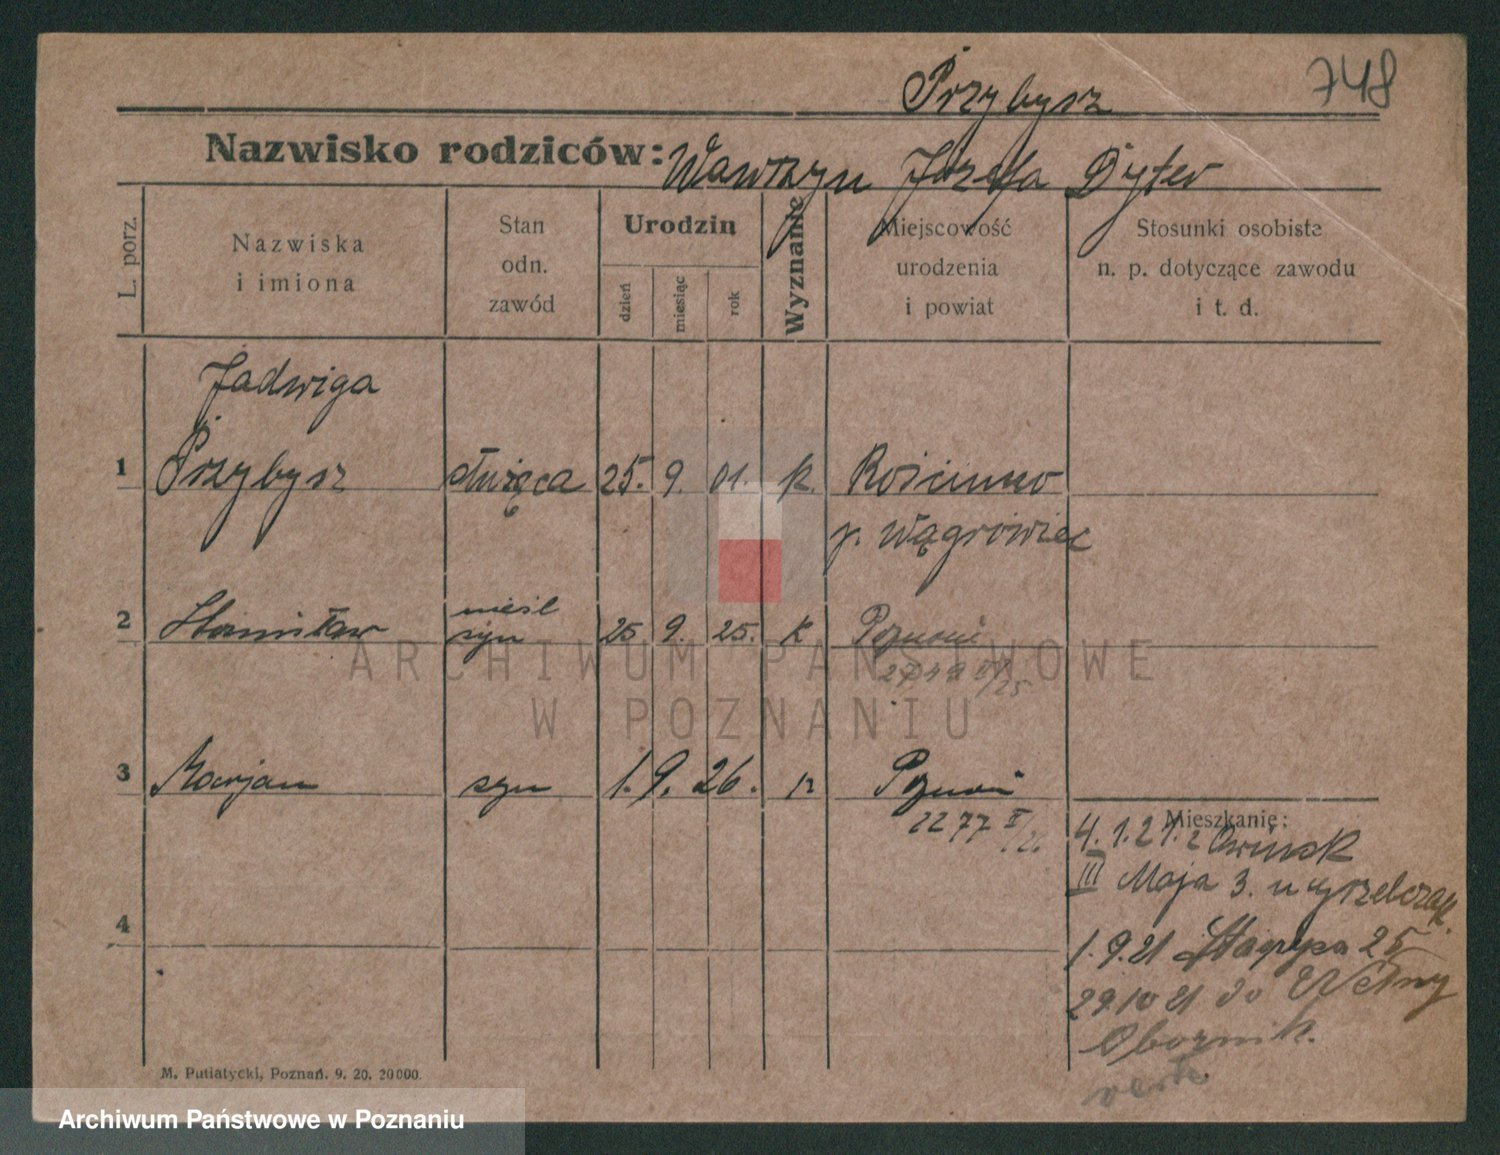 748
Przybysz
Nazwisko rodziców: Wawrzyn Józefa Dyter
L. porz.
Nazwiska
i imiona
Stan
odn.
zawód
Urodzin
dzień
miesiąc
rok
Wyznanie
Miejscowość
urodzenia
i powiat
Stosunki osobiste
n. p. dotyczące zawodu
i t. d.
Jadwiga
1 Przybysz służąca 25. 9. 01. k. Rościnno
p. Wągrowiec
nieśl
2 Stanisław syn 25 9. 25. k Poznań
3 Marjan syn 1. 9. 26. k Poznań
2277
Mieszkanie:
4. 1. 21. z Owinsk
III Maja 3. u
1. 9. 21 25
29. 10 21 do Wełny
Obornik.
verte
4
ARCHIWUM PAŃSTWOWE
W POZNANIU
M. Putiatycki, Poznań. 9. 20. 20000.
Archiwum Państwowe w Poznaniu